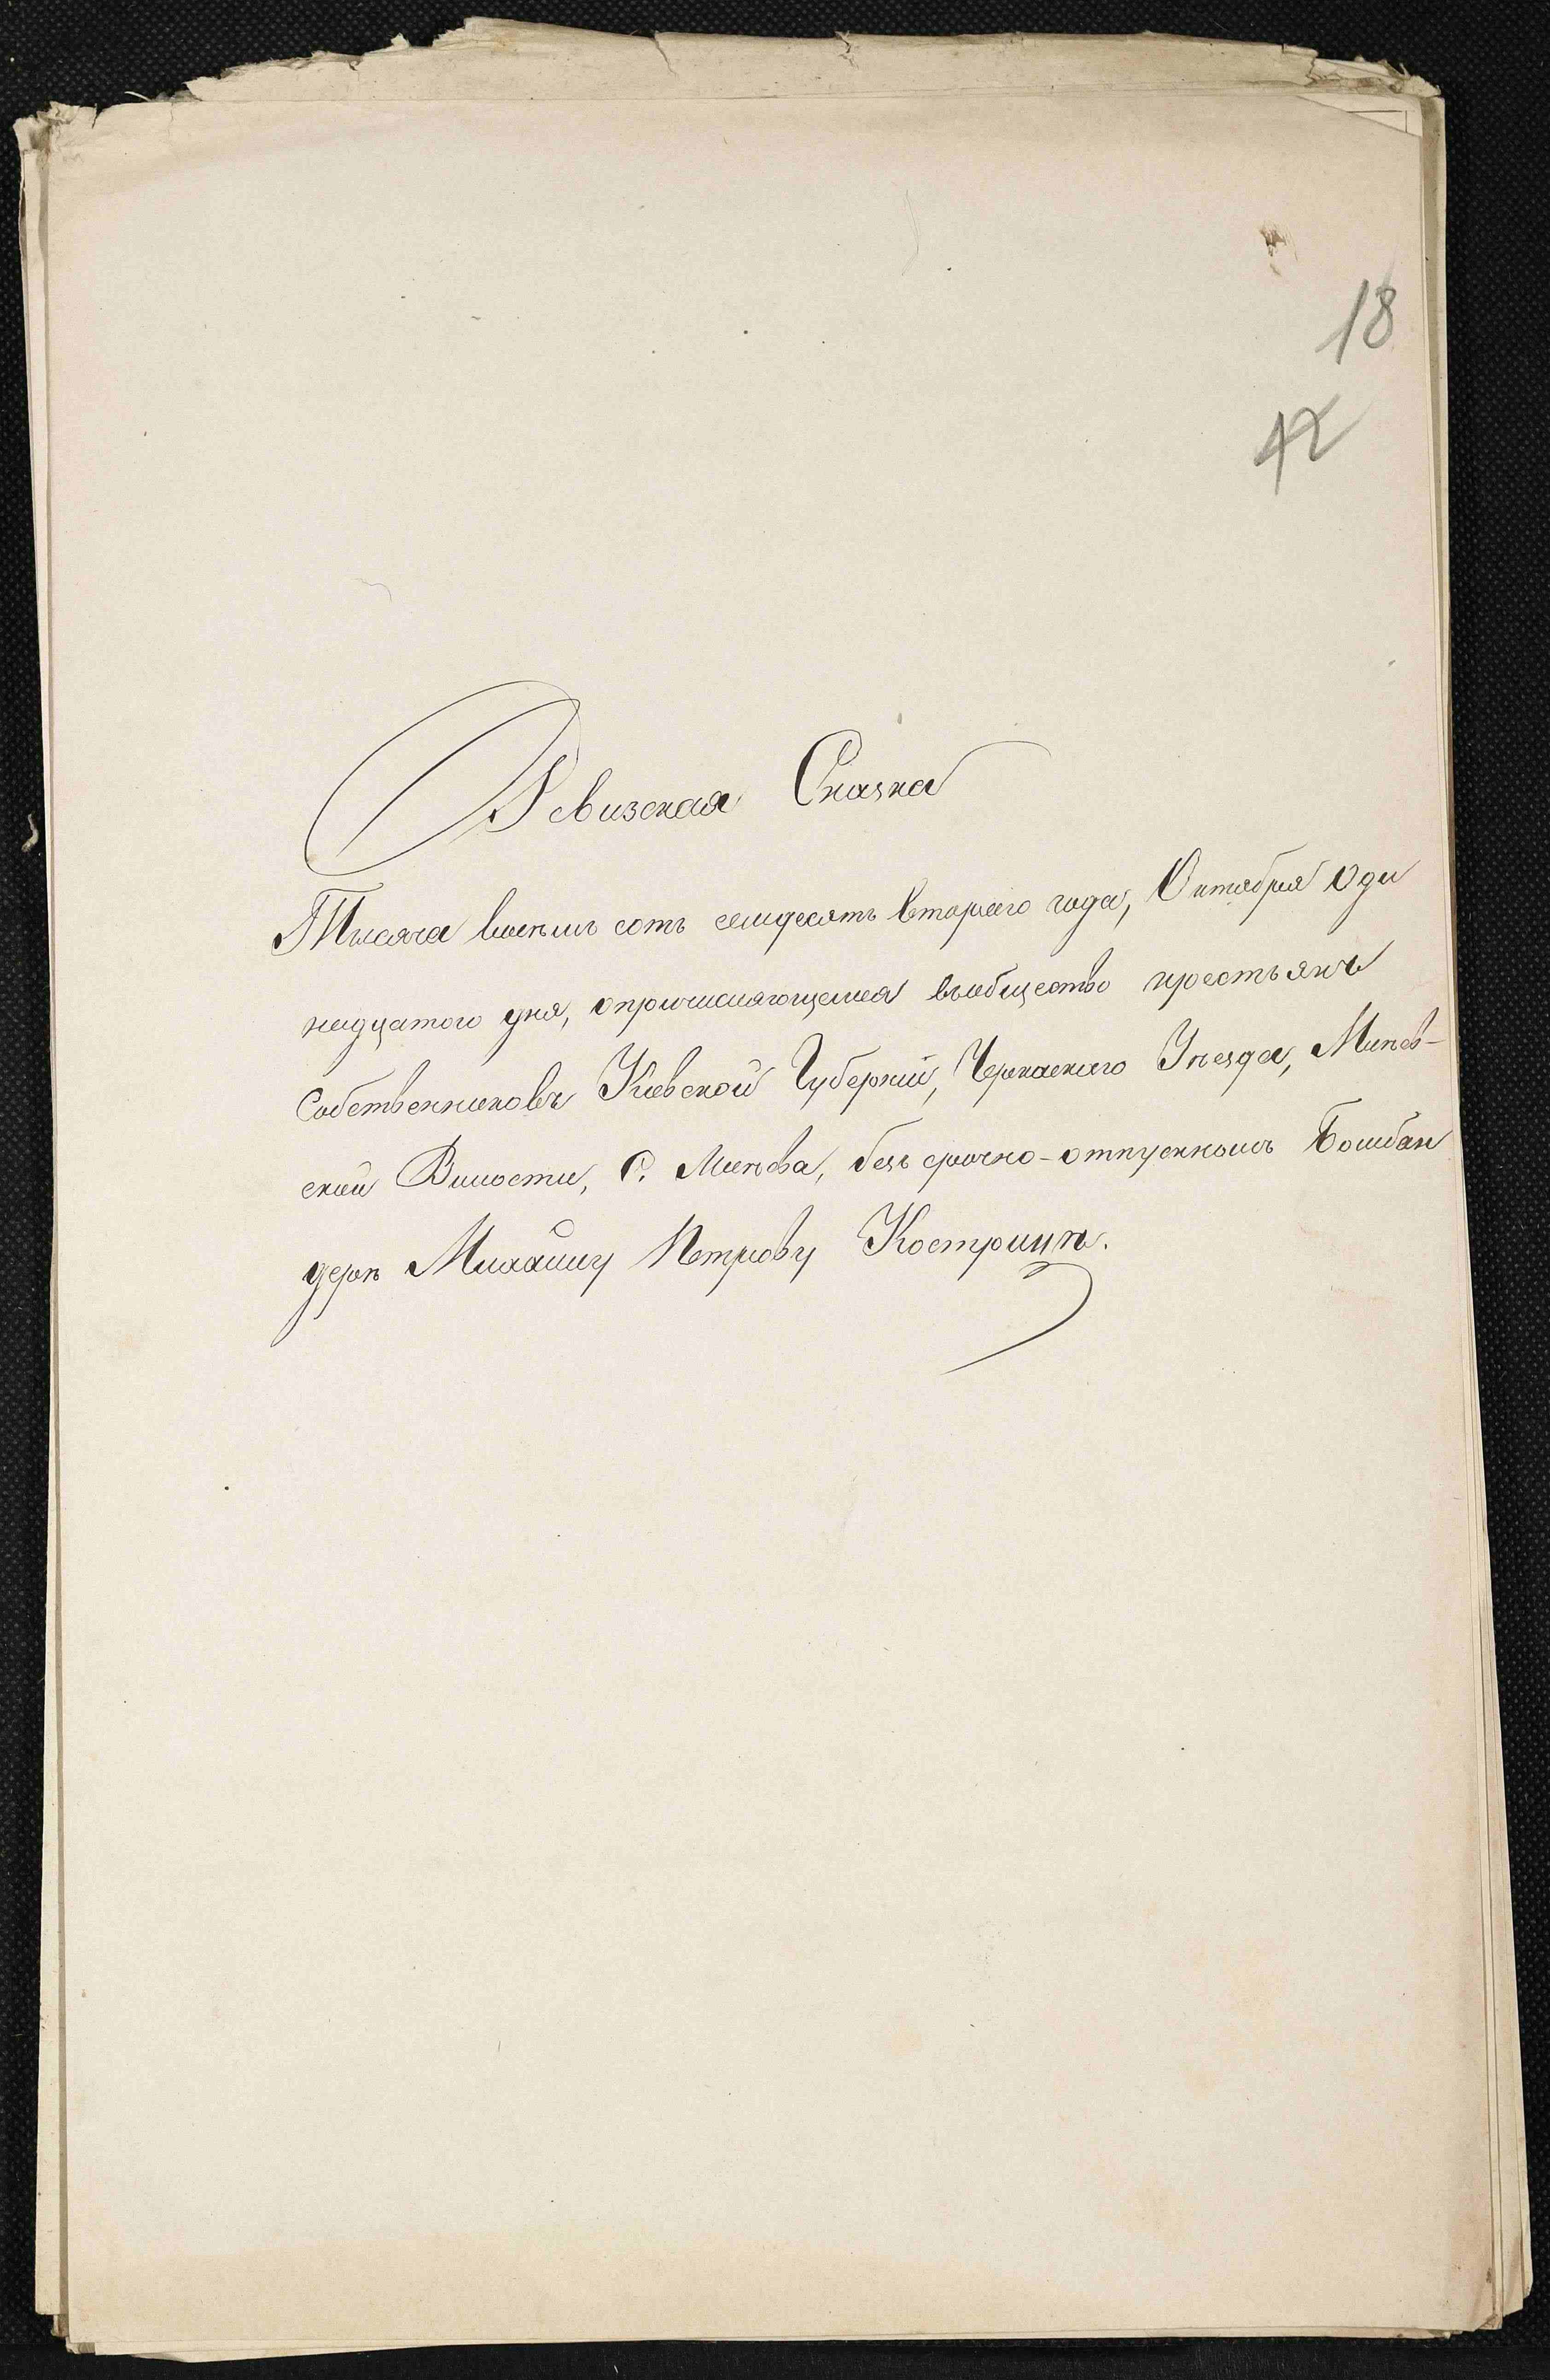 18
42
Ревизская Сказка
Тысяча восемь сотъ семдесятъ втораго года, Октября Оди
надцатого дня, опричисляющемся вьобщество крестьянъ
Собственниковъ Киевской Губернии, Черкаскаго Уѣзда, Млѣев-
ской Волости, С. Млѣева, безъ срочно-отпускномъ Бомбан
дерѣ Михаилу Петрову Кострицѣ.